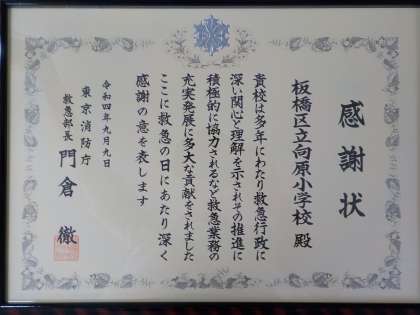 感謝状
板橋区立向原小学校 殿
貴校は多年にわたり救急行政に
深い関心と理解を示されその推進に
積極的に協力されるなど救急業務の
充実発展に多大な貢献をされました
ここに救急の日にあたり深く
感謝の意を表します
令和四年九月九日
東京消防庁
救急部長 門倉 徹